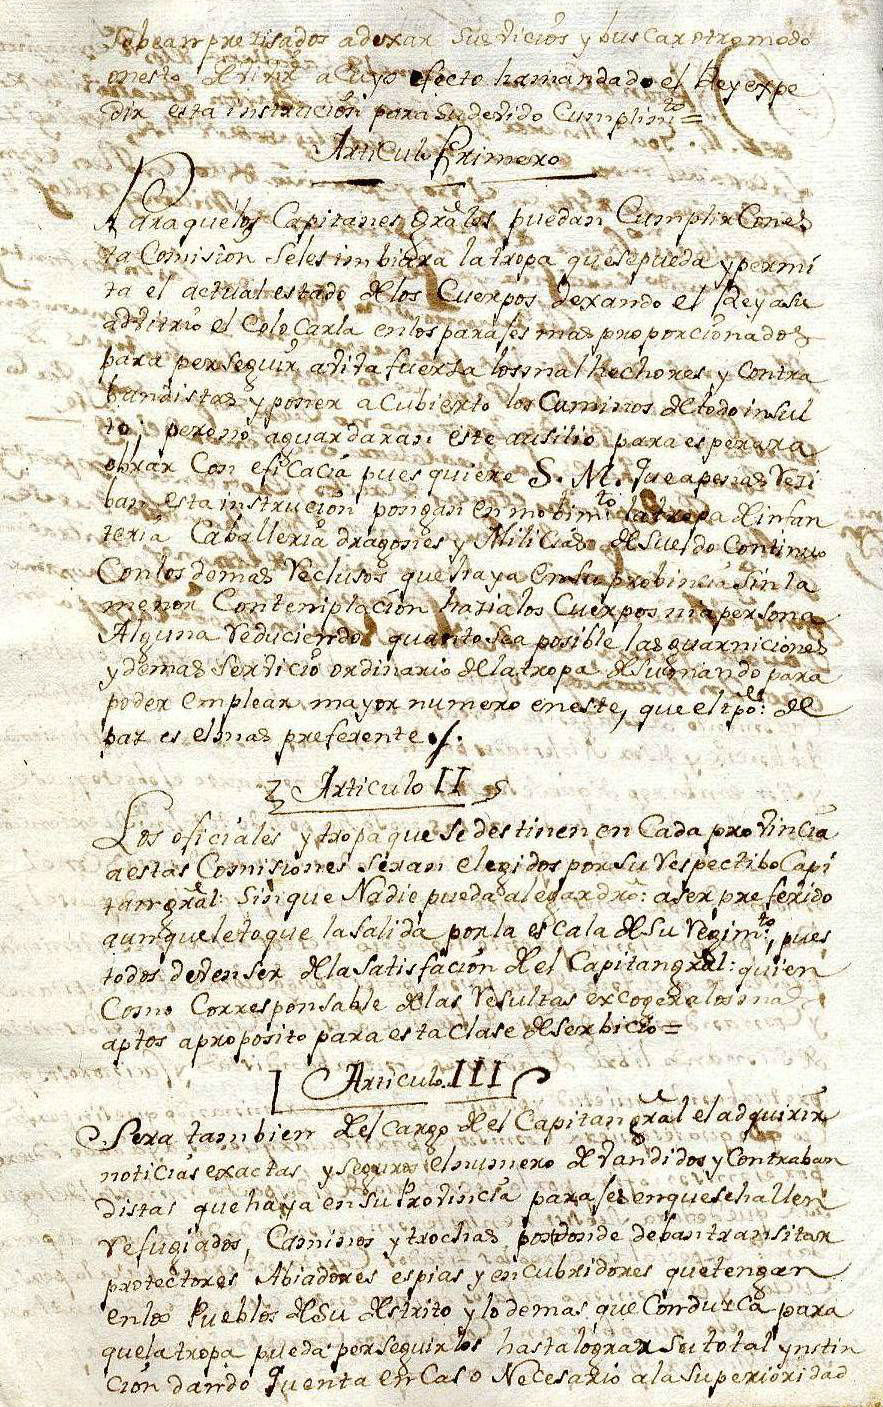 se bean prezisados adexar sus vicios y buscar otro modo
onesto de vivir a Cuyo efecto ha mandado el Rey expe
dir esta instrucion para su devido Cumplimto =
Articulo Primero
Para que los Capitanes Grales puedan Cumplir Con es
ta Comision seles imbiara la tropa que sepueda y permi
ta el actual estado de los Cuerpos dexando el Rey asu
advitrio el Colocarla en los parajes mas proporcionados
para perseguir aviva fuerza los malhechores y Contra
bandistas y poner a Cubierto los Caminos de todo insul
to; pero no aguardaran este ausilio para esperar a
obrar Con eficacia pues quiere S. M. que apenas Rezi
ban esta instrucion pongan en mobimto la tropa de infan
teria Caballeria dragones y Milicias de sueldo Continuo
Con los demas Reclusos que haya en su probincia sin la
menor Contemplacion hazia los Cuerpos ni a persona
Alguna Reduciendo quanto sea posible las guarniciones
y demas servicio ordinario de la tropa de su mando para
poder emplear mayor numero en este, que el tpo: de
paz es el mas preferente
Articulo II
Los oficiales y tropa que se destinen en Cada provincia
a estas Comisiones seran elegidos por su Respectibo Capi
tan gral: sin que Nadie pueda alegar dro: a ser preferido
aunque le toque la salida por la escala de su Regimto, pues
todos deven ser de la satisfacion de el Capitan gral: quien
Como Corresponsable de las Resultas excogera los mas
aptos a proposito para esta Clase de serbicio =
Articulo III
Sera tambien del cargo de el Capitan gral el adquirir
noticias exactas y seguras el numero de vandidos y Contraban
distas que haya en su Provincia parajes en que se hallen
Refugiados, Caminos y trochas por donde deban transitar
protectores Abiadores espias y encubridores que tengan
en los Pueblos de su distrito y lo demas que Conduzca para
que la tropa pueda perseguirlos hasta lograr su total ynstin
cion dando quenta en Caso Necesario a la superioridad